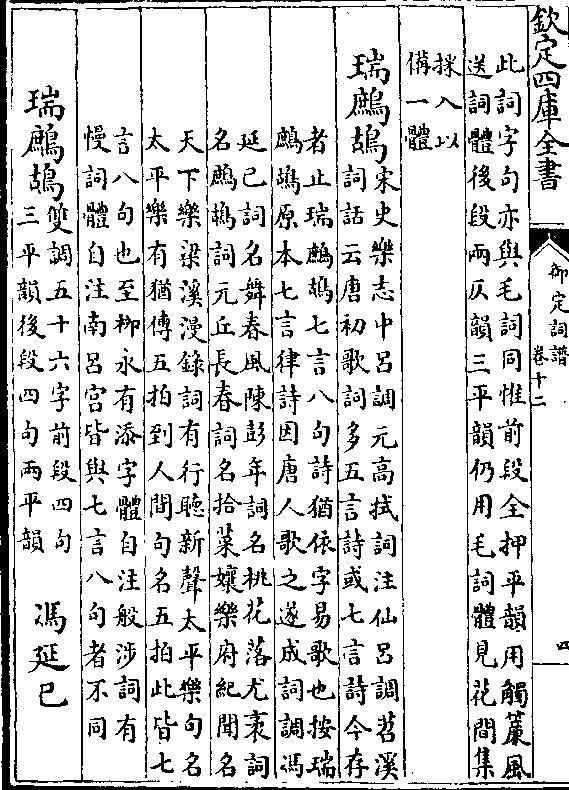 欽定四庫全書
御定詞譜
卷十二
四
此詞字句亦與毛詞同惟前段全押平韻用觸簾風
送詞體後段兩仄韻三平韻仍用毛詞體見花間集
採入以
備一體
瑞鷓鴣
宋史樂志中呂調元高拭詞注仙呂調苕溪
詞話云唐初歌詞多五言詩或七言詩今存
者止瑞鷓鴣七言八句詩猶依字易歌也按瑞
鷓鴣原本七言律詩因唐人歌之遂成詞調馮
延已詞名舞春風陳彭年詞名桃花落尤袤詞
名鷓鴣詞元丘長春詞名拾菜孃樂府紀聞名
天下樂梁溪漫錄詞有行聽新聲太平樂句名
太平樂有猶傳五拍到人間句名五拍此皆七
言八句也至柳永有添字體自注般涉詞有
慢詞體自注南呂宮皆與七言八句者不同
瑞鷓鴣
雙調五十六字前段四句
三平韻後段四句兩平韻
馮延已